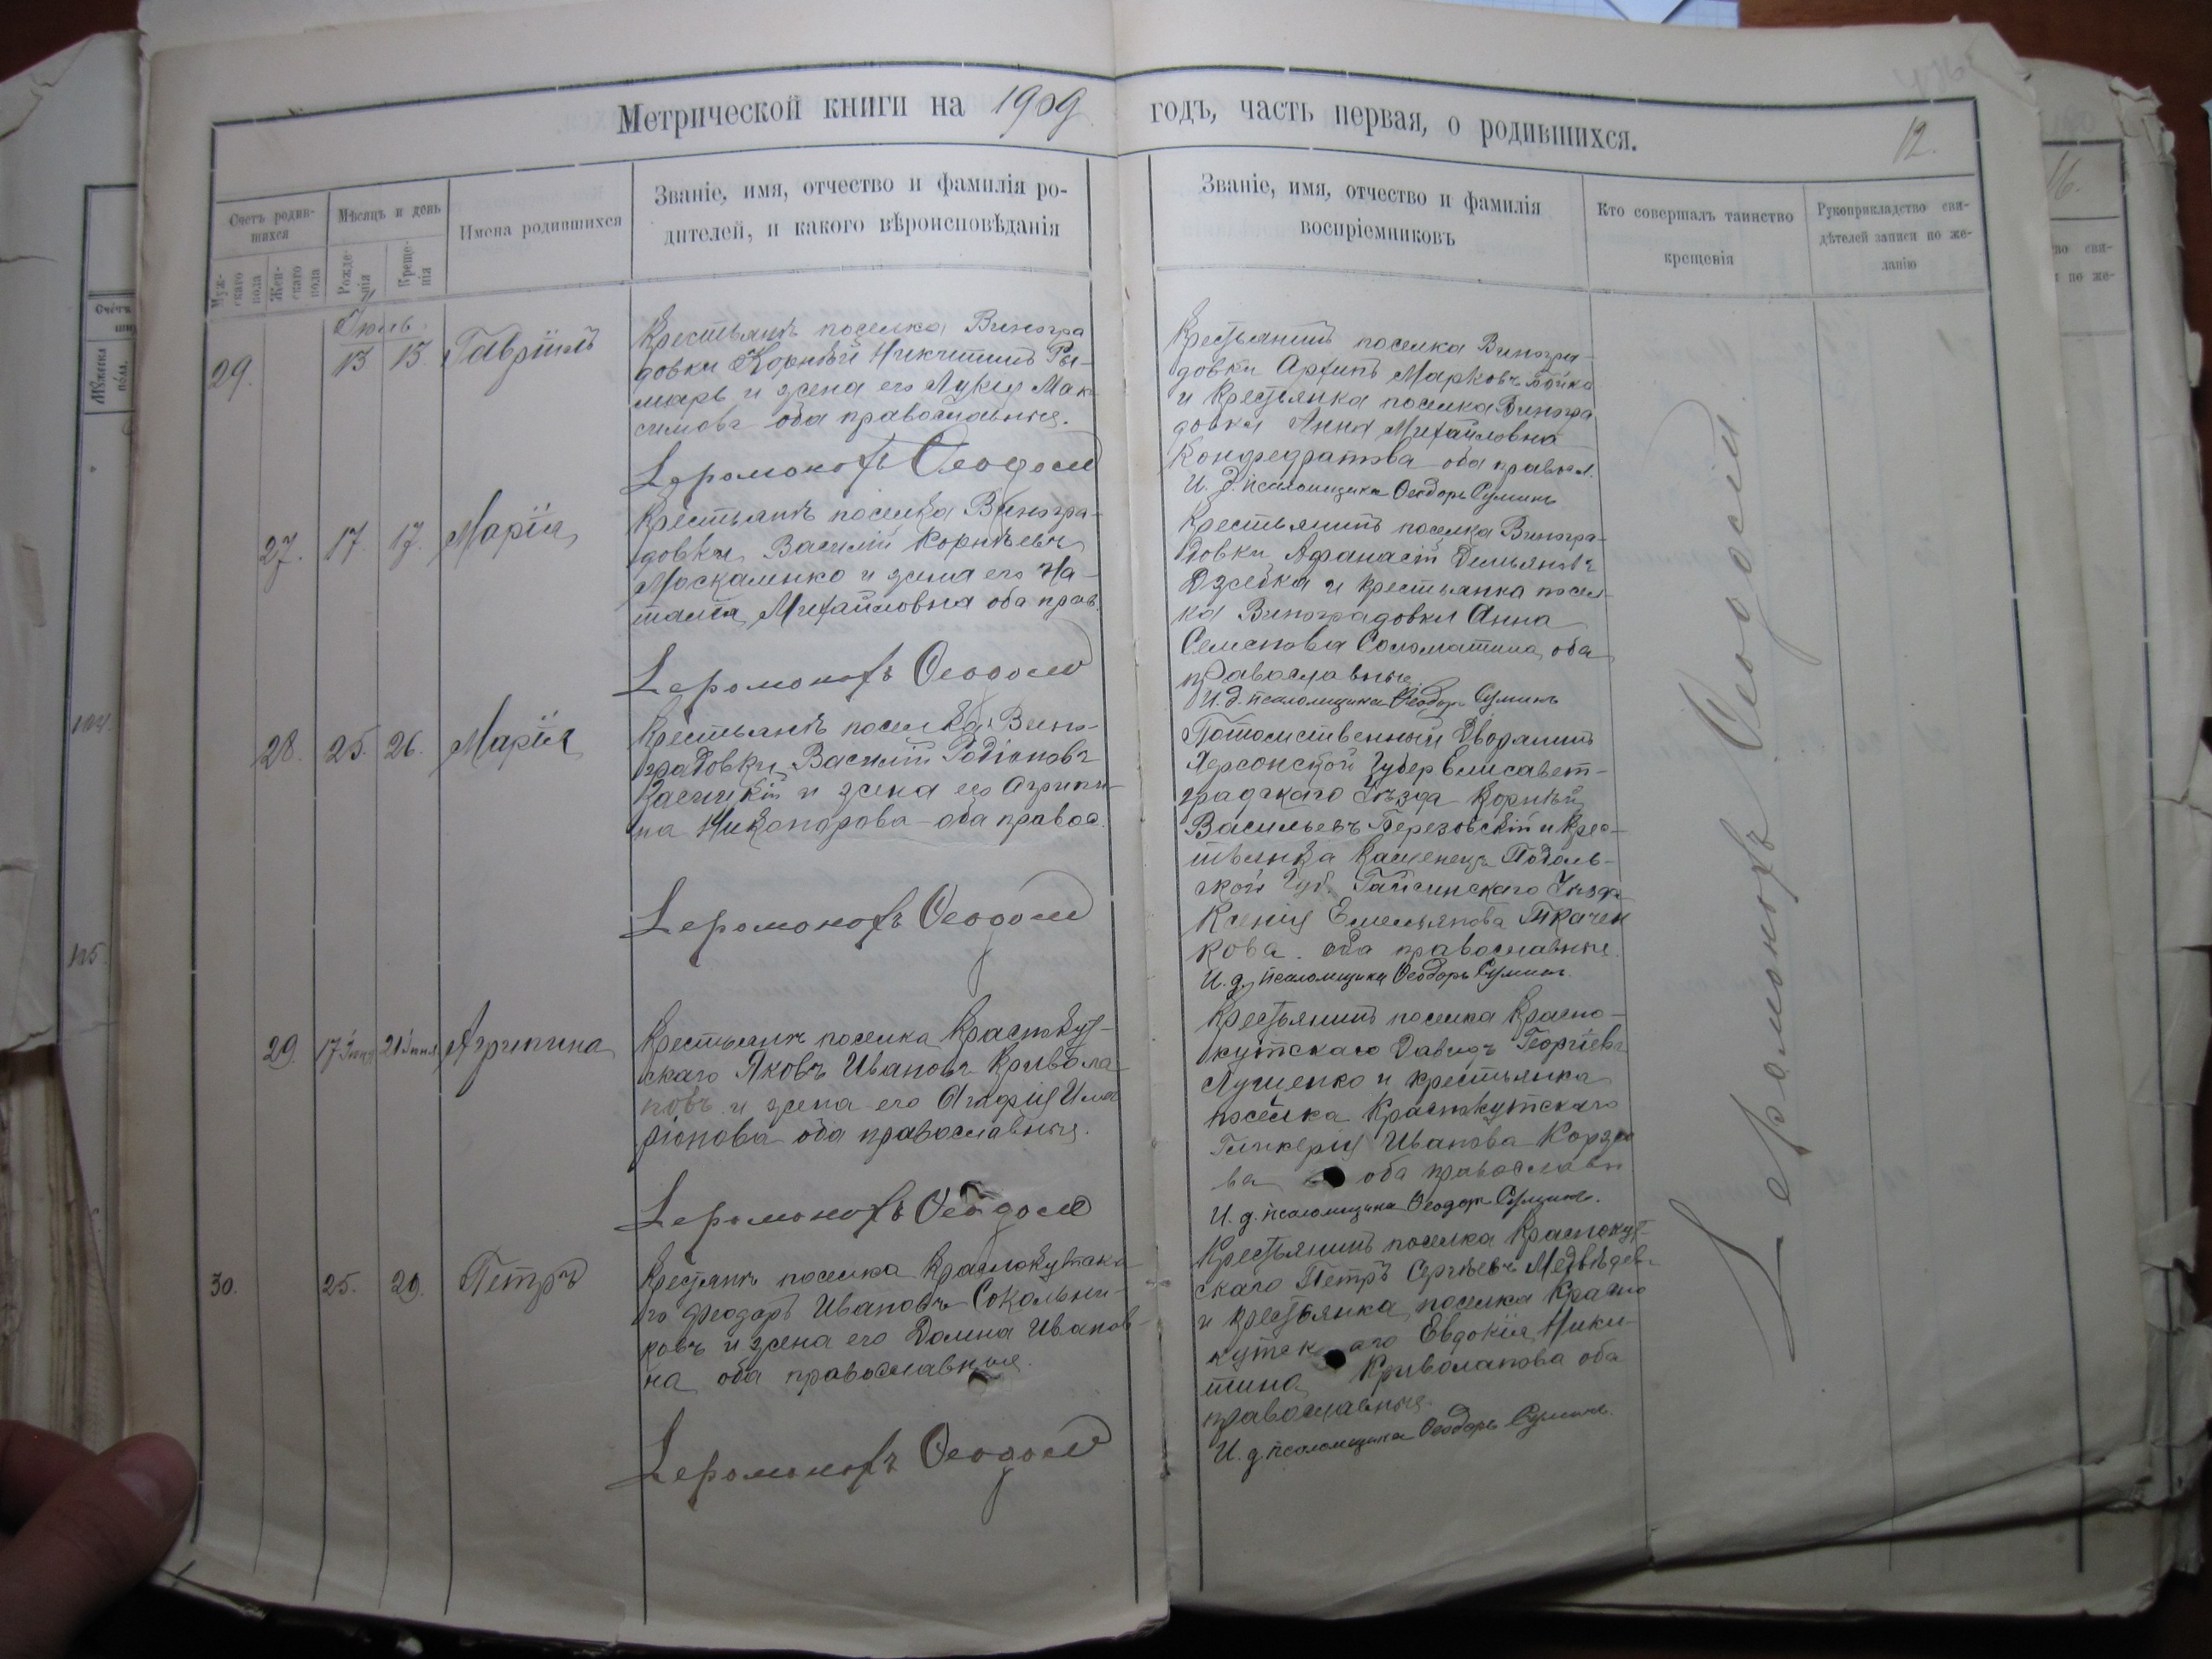 Метрической книги на 1909 годъ, часть первая, о родившихся.
12.
Счетъ родив-
шихся
Муж-
скаго
пола
Жен-
скаго
пола
Мѣсяцъ и день
Рожде-
нія
Креще-
нія
Имена родившихся
Званіе, имя, отчество и фамилія ро-
дителей, и какого вѣроисповѣданія
Званіе, имя, отчество и фамилія
воспріемниковъ
Кто совершалъ таинство
крещенія
Рукоприкладство сви-
дѣтелей записи по же-
ланію
29. 13 13. Гавріилъ
поселка Виногра
довки Корнѣй Никитинъ Ры-
марь и жена его Лукія Мак
симова оба православные.
Іеромонахъ Ѳеодосій
Крестьянинъ поселка Виногра-
довки Архипъ Марковъ
и Крестьянка поселка Виногра
довки Анна Михайловна
оба правосл.
И. д. псаломщика Ѳеодоръ Суминъ
27. 17. 17. Марія
поселка Виногра-
довки Василій Корнѣевъ
Москаленко и жена его На-
талія Михайловна оба прав.
Іеромонахъ Ѳеодосій
Крестьянинъ поселка Виногра-
довки Афанасій Демьяновъ
и крестьянка посел-
ка Виноградовки Анна
Семенова Соломатина оба
православные
И. д. псаломщика Ѳеодоръ Суминъ
28. 25. 26. Марія
поселка Вино-
градовки Василій Родіоновъ
и жена его Агрипи-
на Никандрова оба правос.
Іеромонахъ Ѳеодосій
Потомственный Дворянинъ
Херсонской Губер Елисавет-
градскаго Уѣзда Корнѣй
Васильевъ Березовскій и Крес-
тьянка Каменецъ Подоль-
ской Губ. Гайсинскаго Уѣзда
Ксенія Емельянова Ткачен
кова. оба православные.
И. д. псаломщика Ѳеодоръ Суминъ.
29. 17 Іюня 21 Іюня Агрипина
поселка Краснокут-
скаго Яковъ Ивановъ Кривола-
повъ и жена его Агафія Ила
ріонова оба православные.
Іеромонахъ Ѳеодосій
Крестьянинъ поселка Красно-
кутскаго Давидъ Георгіевъ
Луценко и крестьянка
поселка Краснокутскаго
Гликерія Иванова
оба православн
И. д. псаломщика Ѳеодоръ Суминъ.
30. 25. 29. Петръ
поселка Краснокутска
го Ѳеодоръ Ивановъ Сокольни-
ковъ и жена его Домна Иванов
на оба православные.
Іеромонахъ Ѳеодосій
Крестьянинъ поселка Краснокут-
скаго Петръ Сергѣевъ Медвѣдевъ
и крестьянка поселка Красно
кутскаго Евдокія Ники-
тина Криволапова оба
православные.
И. д. псаломщика Ѳеодоръ Суминъ.
Іеромонахъ Ѳеодосій
16.
104.
105.